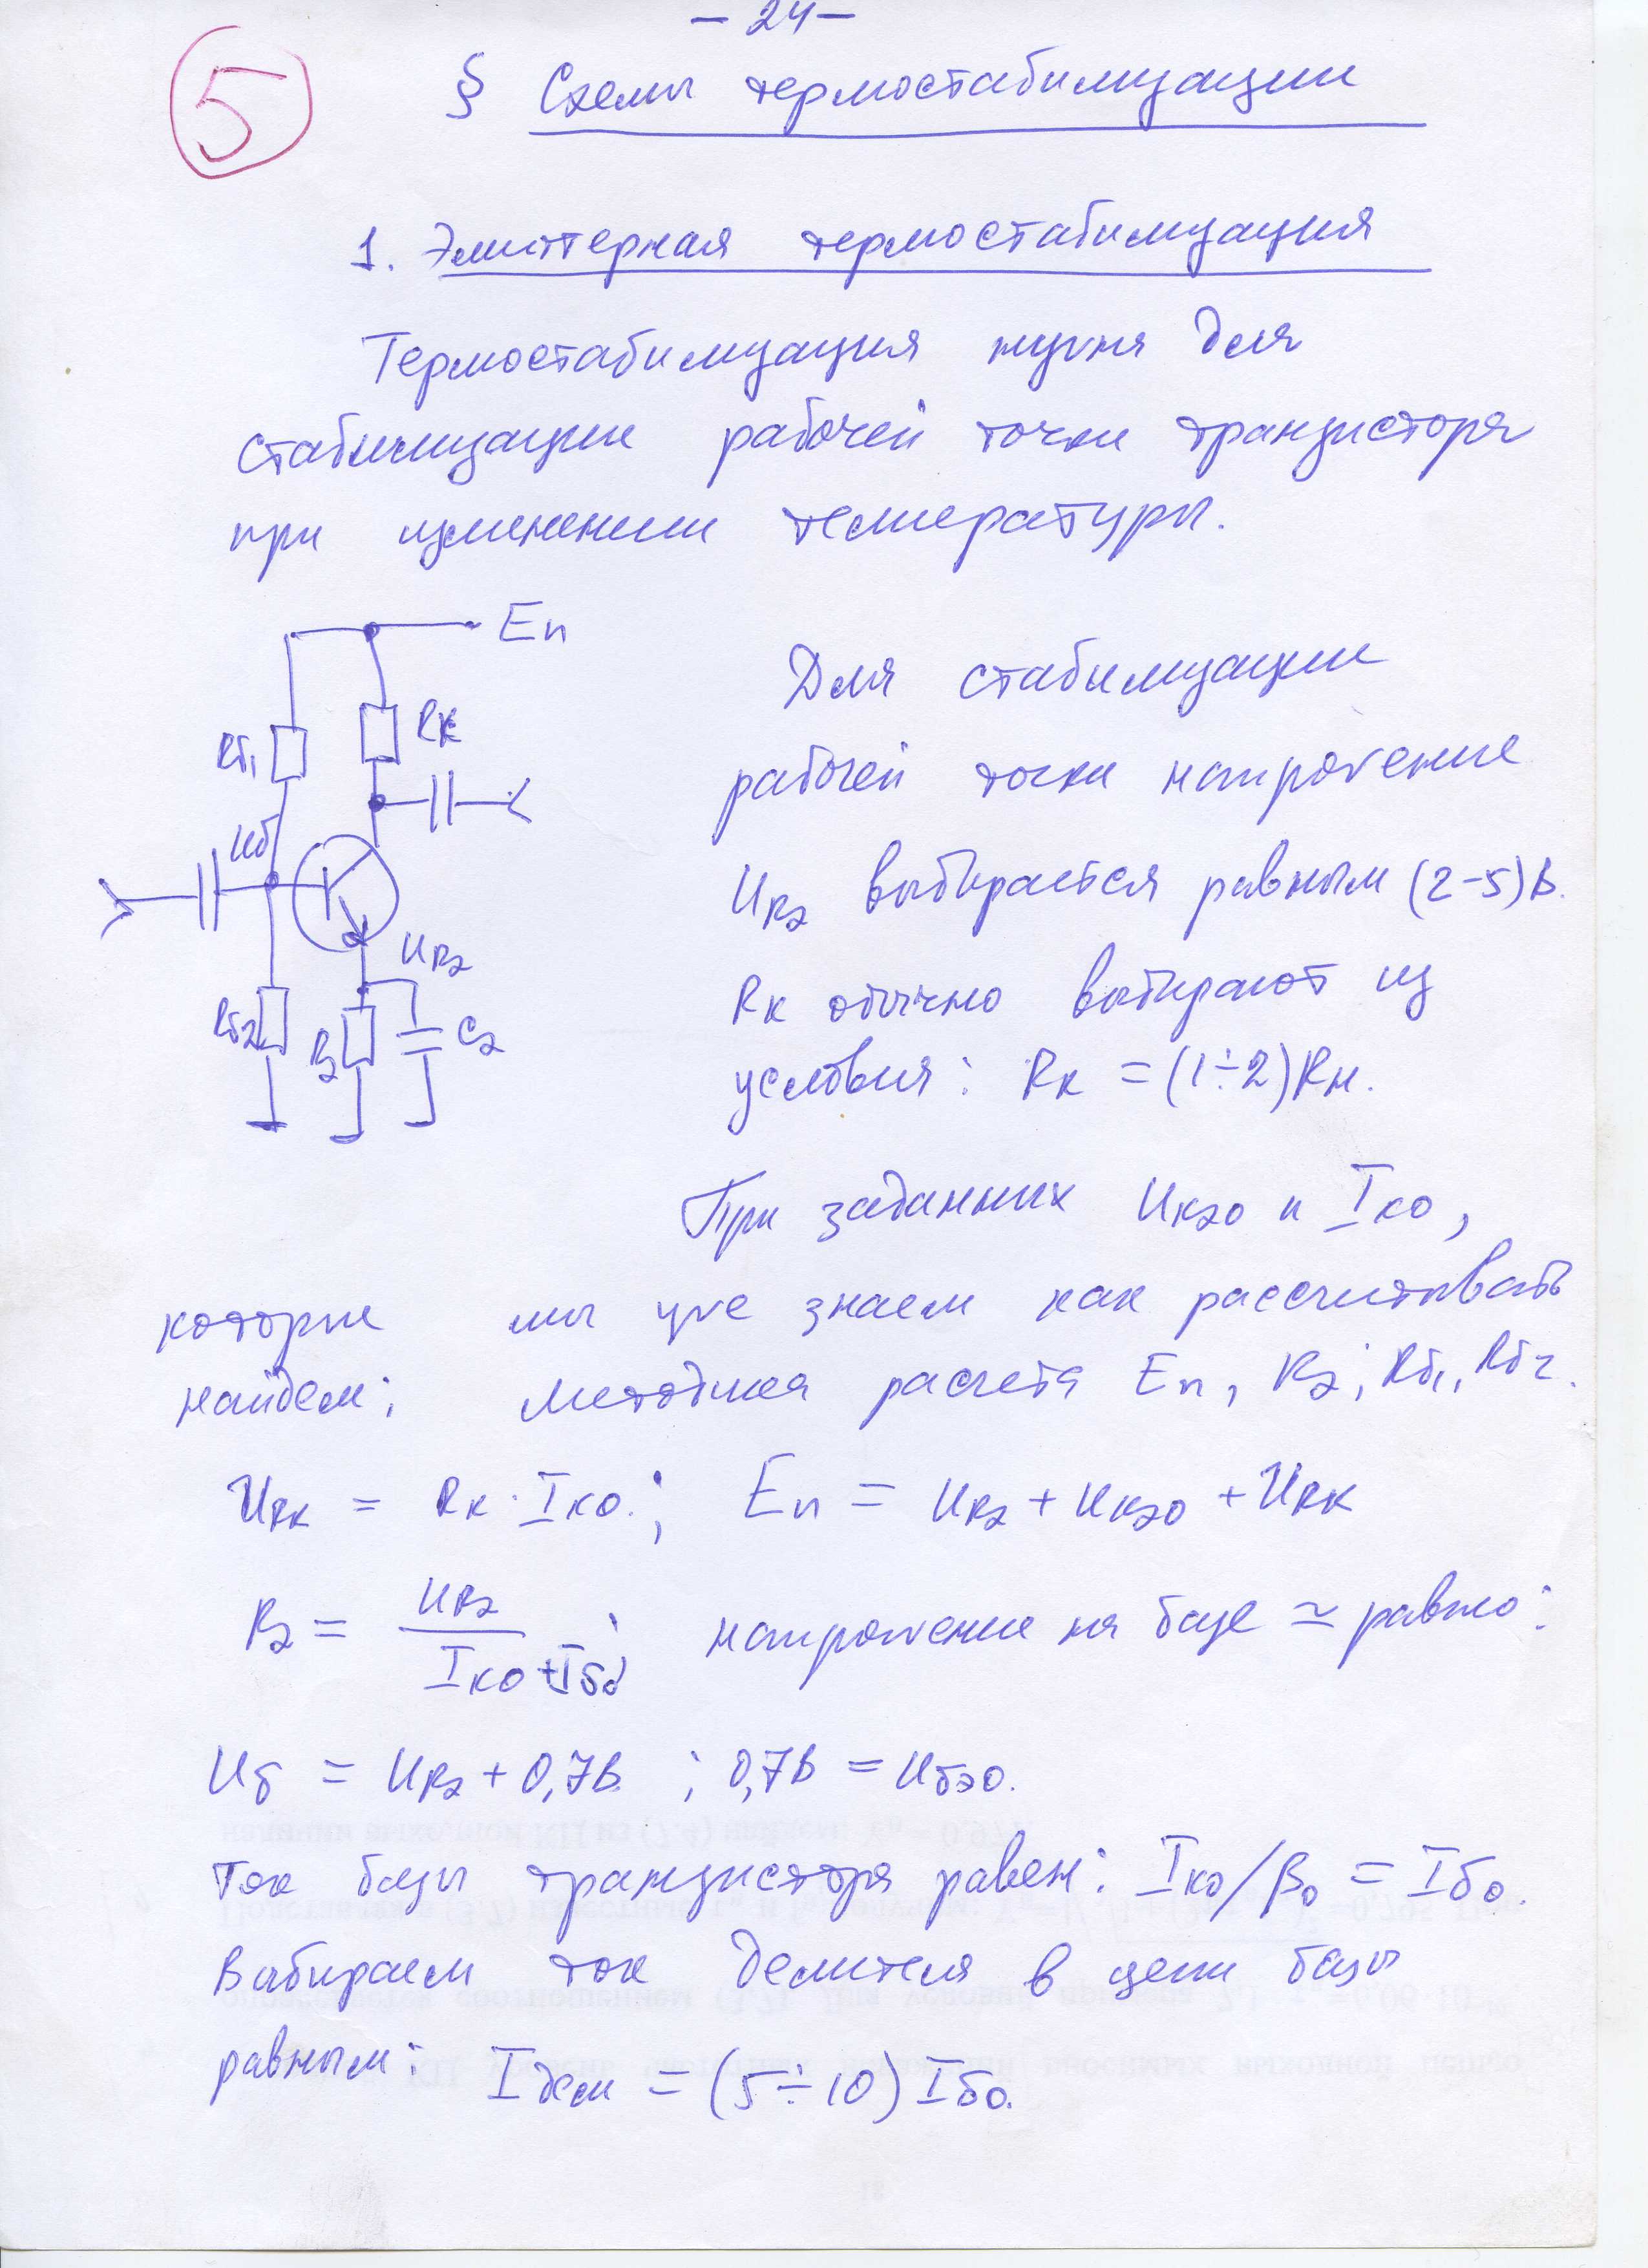 — 24 —
5
§ Схемы термостабилизации
1. Эмиттерная термостабилизация
Термостабилизация нужна для
стабилизации рабочей точки транзистора
при изменении температуры.
Еп
Rк
Rб1
Uб
URэ
Rб2
Rэ
Cэ
Для стабилизации
рабочей точки напряжение
URэ выбирается равным (2-5)В.
Rк обычно выбирают из
условия: Rк = (1÷2)Rн.
При заданных Uкэо и Iко,
которые мы уже знаем как рассчитывать
найдем; методика расчета Еп, Rэ; Rб1, Rб2.
URк = Rк · Iко.; Еп = URэ + Uкэо + URк
Rэ = URэ / (Iко + Iбо); напряжение на базе ≃ равно:
Uб = URэ + 0,7В ; 0,7В = Uбэо.
Ток базы транзистора равен: Iко/β0 = Iбо.
Выбираем ток делителя в цепи базы
равным: Iдел = (5÷10) Iбо.